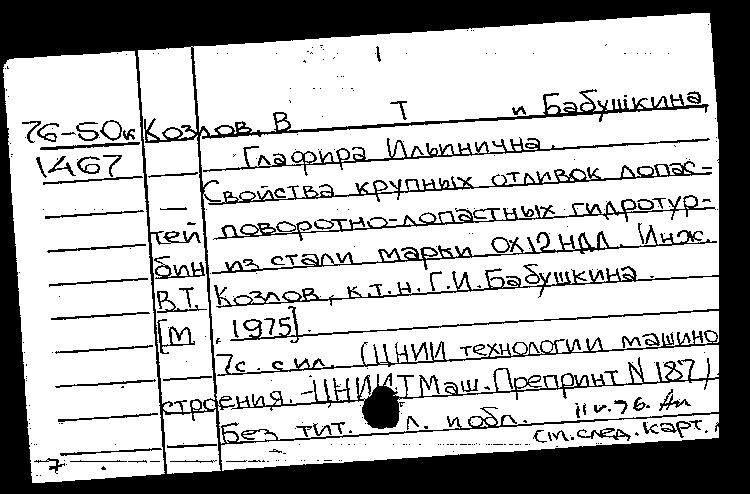 1
76-50к Козлов, В Т и Бабушкина,
1467 Глафира Ильинична.
Свойства крупных отливок лопас-
тей поворотно-лопастных гидротур-
бин из стали марки 0Х12НДЛ. Инж.
В.Т. Козлов, к.т.н. Г.И. Бабушкина.
[М., 1975].
7с. с ил. (ЦНИИ технологии машино
строения. -ЦНИИТМаш. Препринт N 187).
Без тит. л. и обл. 11 V.76. Ап
см. след. карт.
7